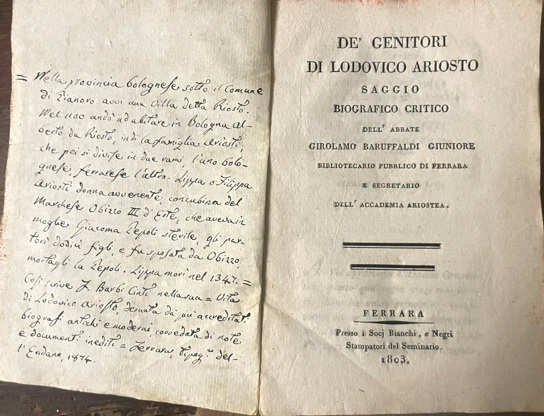 = Nella provincia bolognese sotto il Comune
di Pianoro avvi una Villa detta Riosto.
Nel 1100 andò ad abitare in Bologna Al-
berto da Riosto, ed la famiglia Ariosti,
che poi si divise in due rami l'uno bolo-
gnese, ferrarese l'altro. Lippa o Filippa
Ariosti donna avvenente, concubina del
Marchese Obizzo III d'Este, che aveva in
moglie Giacoma Pepoli sterile, gli par-
torì dodici figli, e fu sposata da Obizzo
mortagli la Pepoli. Lippa morì nel 1347. =
Così scrive F. Barbi Cinti nella sua = Vita
di Lodovico Ariosto, desunta da' più accreditati
biografi antichi e moderni corredata di note
e documenti inediti = Ferrara, tipog.a del-
l'Eridano, 1874.
DE' GENITORI
DI LODOVICO ARIOSTO
SAGGIO
BIOGRAFICO CRITICO
DELL' ABBATE
GIROLAMO BARUFFALDI GIUNIORE
BIBLIOTECARIO PUBBLICO DI FERRARA
E SECRETARIO
DELL' ACCADEMIA ARIOSTEA.
FERRARA
Presso i Socj Bianchi, e Negri
Stampatori del Seminario.
1803.